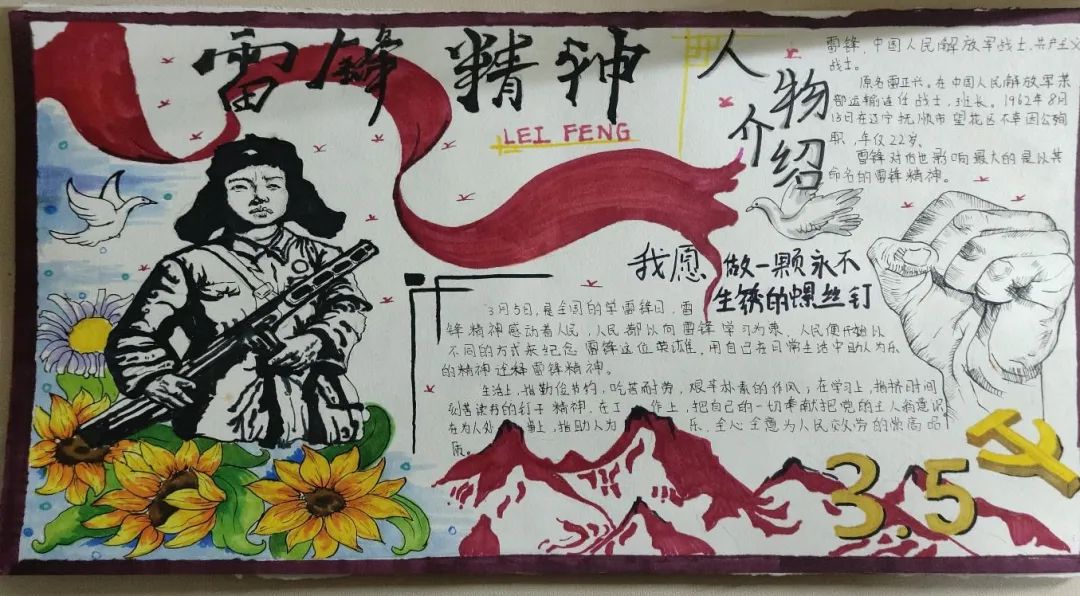 雷锋精神
LEI FENG
人物介绍
雷锋，中国人民解放军战士，共产主义
战士。
原名雷正兴。在中国人民解放军某
部运输连任战士，班长。1962年8月
15日在辽宁抚顺市望花区不幸因公殉
职，年仅22岁。
雷锋对后世影响最大的是以其
命名的雷锋精神。
我愿做一颗永不
生锈的螺丝钉
3月5日，是全国的学雷锋日，雷
锋精神感动着人民，人民都以向雷锋学习为荣，人民便开始以
不同的方式来纪念雷锋这位英雄，用自己在日常生活中助人为乐
的精神诠释雷锋精神。
生活上，指勤俭节约，吃苦耐劳，艰辛朴素的作风；在学习上，指挤时间
刻苦读书的钉子精神，在工作上，把自己的一切奉献把党的主人翁意识
在为人处事上，指助人为乐、全心全意为人民效劳的崇高品
质。
3.5